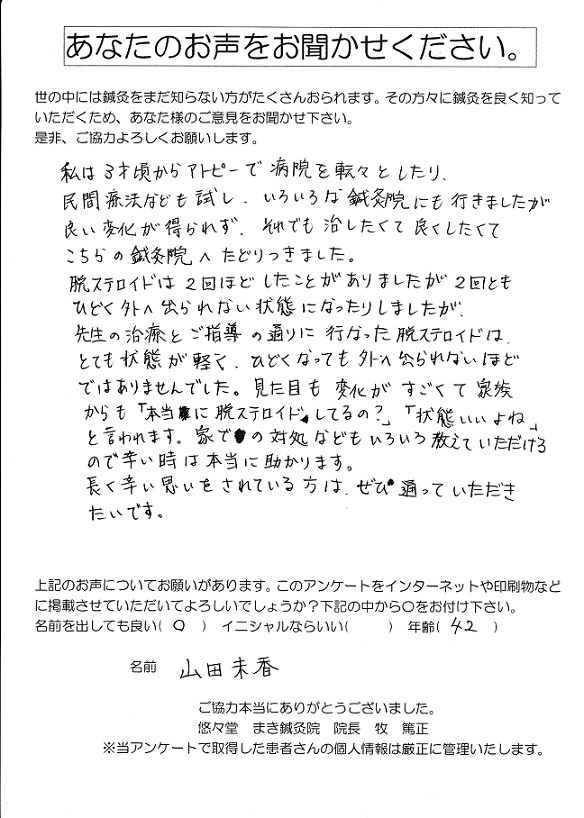 あなたのお声をお聞かせください。
世の中には鍼灸をまだ知らない方がたくさんおられます。その方々に鍼灸を良く知って
いただくため、あなた様のご意見をお聞かせ下さい。
是非、ご協力よろしくお願いします。
私は3才頃からアトピーで病院を転々としたり、
民間療法なども試し、いろいろな鍼灸院にも行きましたが
良い変化が得られず、それでも治したくて良くしたくて
こちらの鍼灸院へたどりつきました。
脱ステロイドは2回ほどしたことがありましたが2回とも
ひどく外へ出られない状態になったりしましたが、
先生の治療とご指導の通りに行なった脱ステロイドは、
とても状態が軽く、ひどくなっても外へ出られないほど
ではありませんでした。見た目も変化がすごくて家族
からも「本当に脱ステロイドしてるの?」「状態いいよね」
と言われます。家での対処などもいろいろ教えていただける
ので辛い時は本当に助かります。
長く辛い思いをされている方は、ぜひ通っていただき
たいです。
上記のお声についてお願いがあります。このアンケートをインターネットや印刷物など
に掲載させていただいてよろしいでしょうか?下記の中から○をお付け下さい。
名前を出しても良い( ○ ) イニシャルならいい( ) 年齢( 42 )
名前 山田未香
ご協力本当にありがとうございました。
悠々堂 まき鍼灸院 院長 牧 篤正
※当アンケートで取得した患者さんの個人情報は厳正に管理いたします。